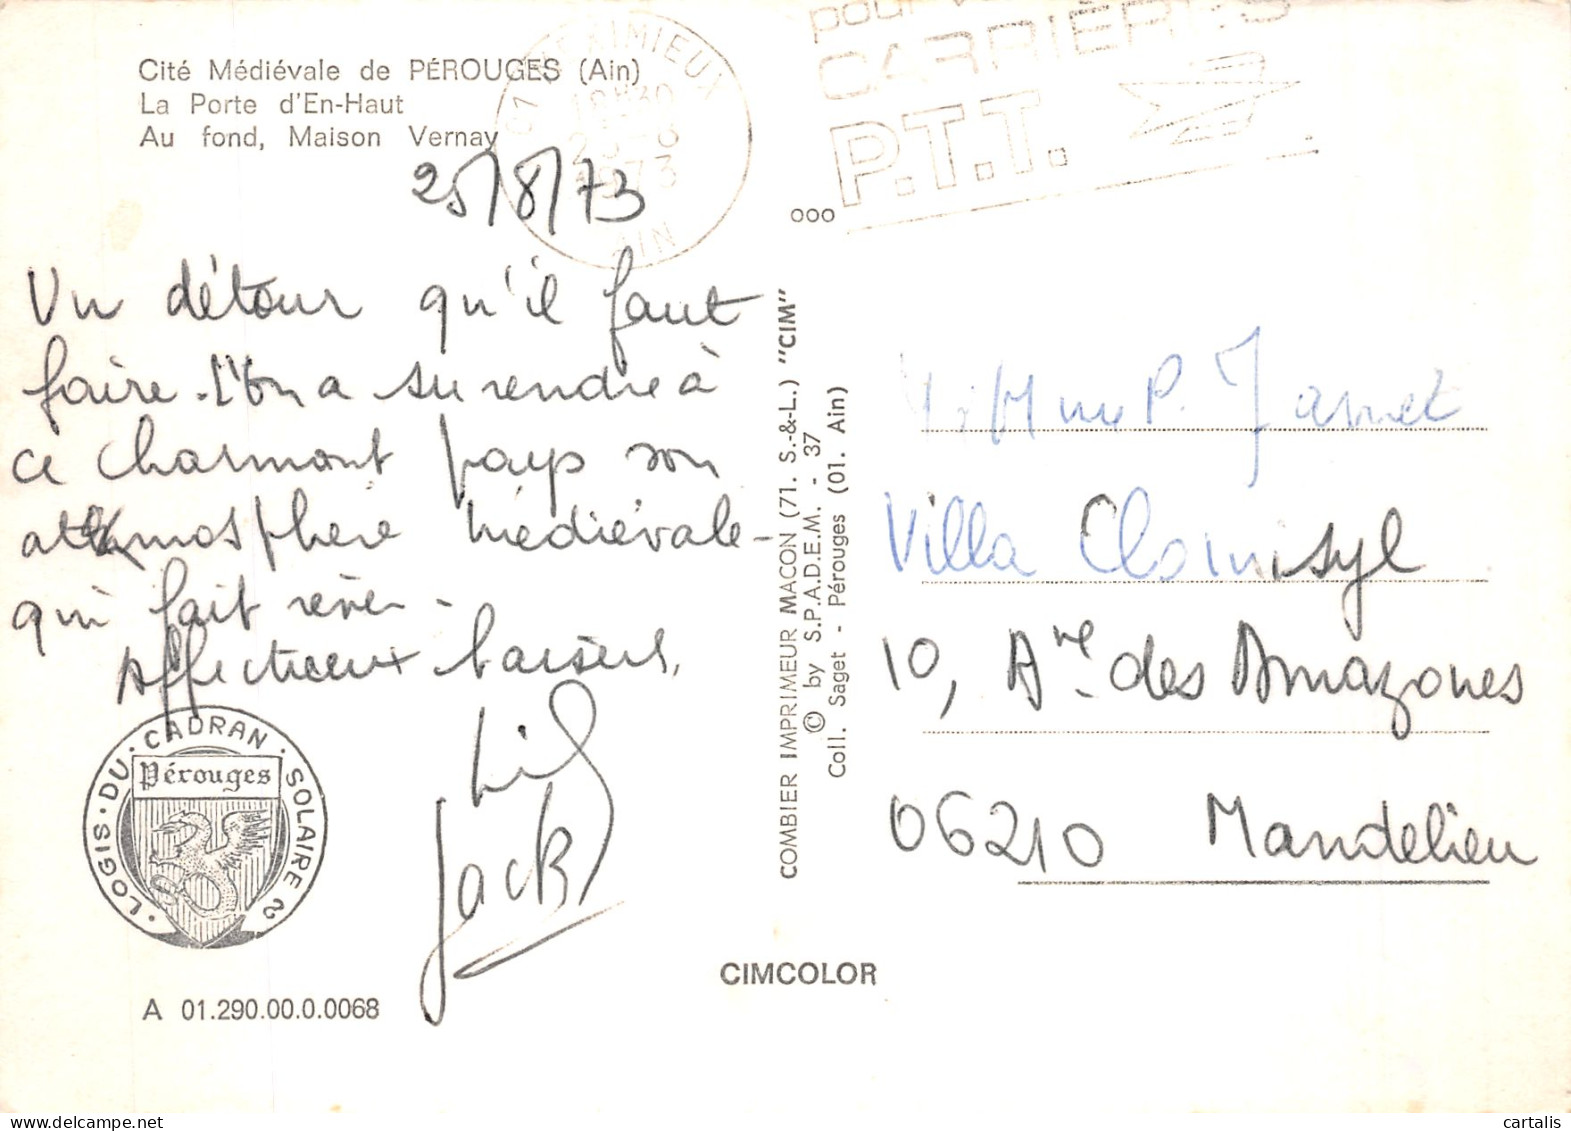 Cité Médiévale de PÉROUGES (Ain)
La Porte d'En-Haut
Au fond, Maison Vernay
MEXIMIEUX
18H30
AIN
CARRIÈRES
P.T.T.
25/8/73
000
Un détour qu'il faut
faire. L'on a su rendre à
ce charmant pays son
atmosphère médiévale -
qui fait rêver -
Affectueux baisers,
Jack
LOGIS · DU · CADRAN · SOLAIRE
Pérouges
A 01.290.00.0.0068
COMBIER IMPRIMEUR MACON (71. S.-&-L.) "CIM"
© by S.P.A.D.E.M. - 37
Coll. Saget - Pérouges (01. Ain)
CIMCOLOR
Mme P. Jannet
Villa Clairisyl
10, Ave des Amazones
06210 Mandelieu
www.cartolis.com